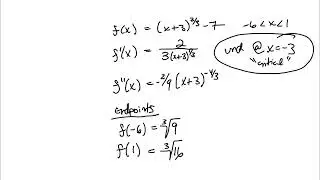 f(x) = (x+3)^{2/3} - 7    -6 < x < 1
f'(x) = 2 / 3(x+3)^{1/3}    und @ x = -3
"critical"
f''(x) = -2/9 (x+3)^{-4/3}
Endpoints
f(-6) = ∛9
f(1) = ∛16